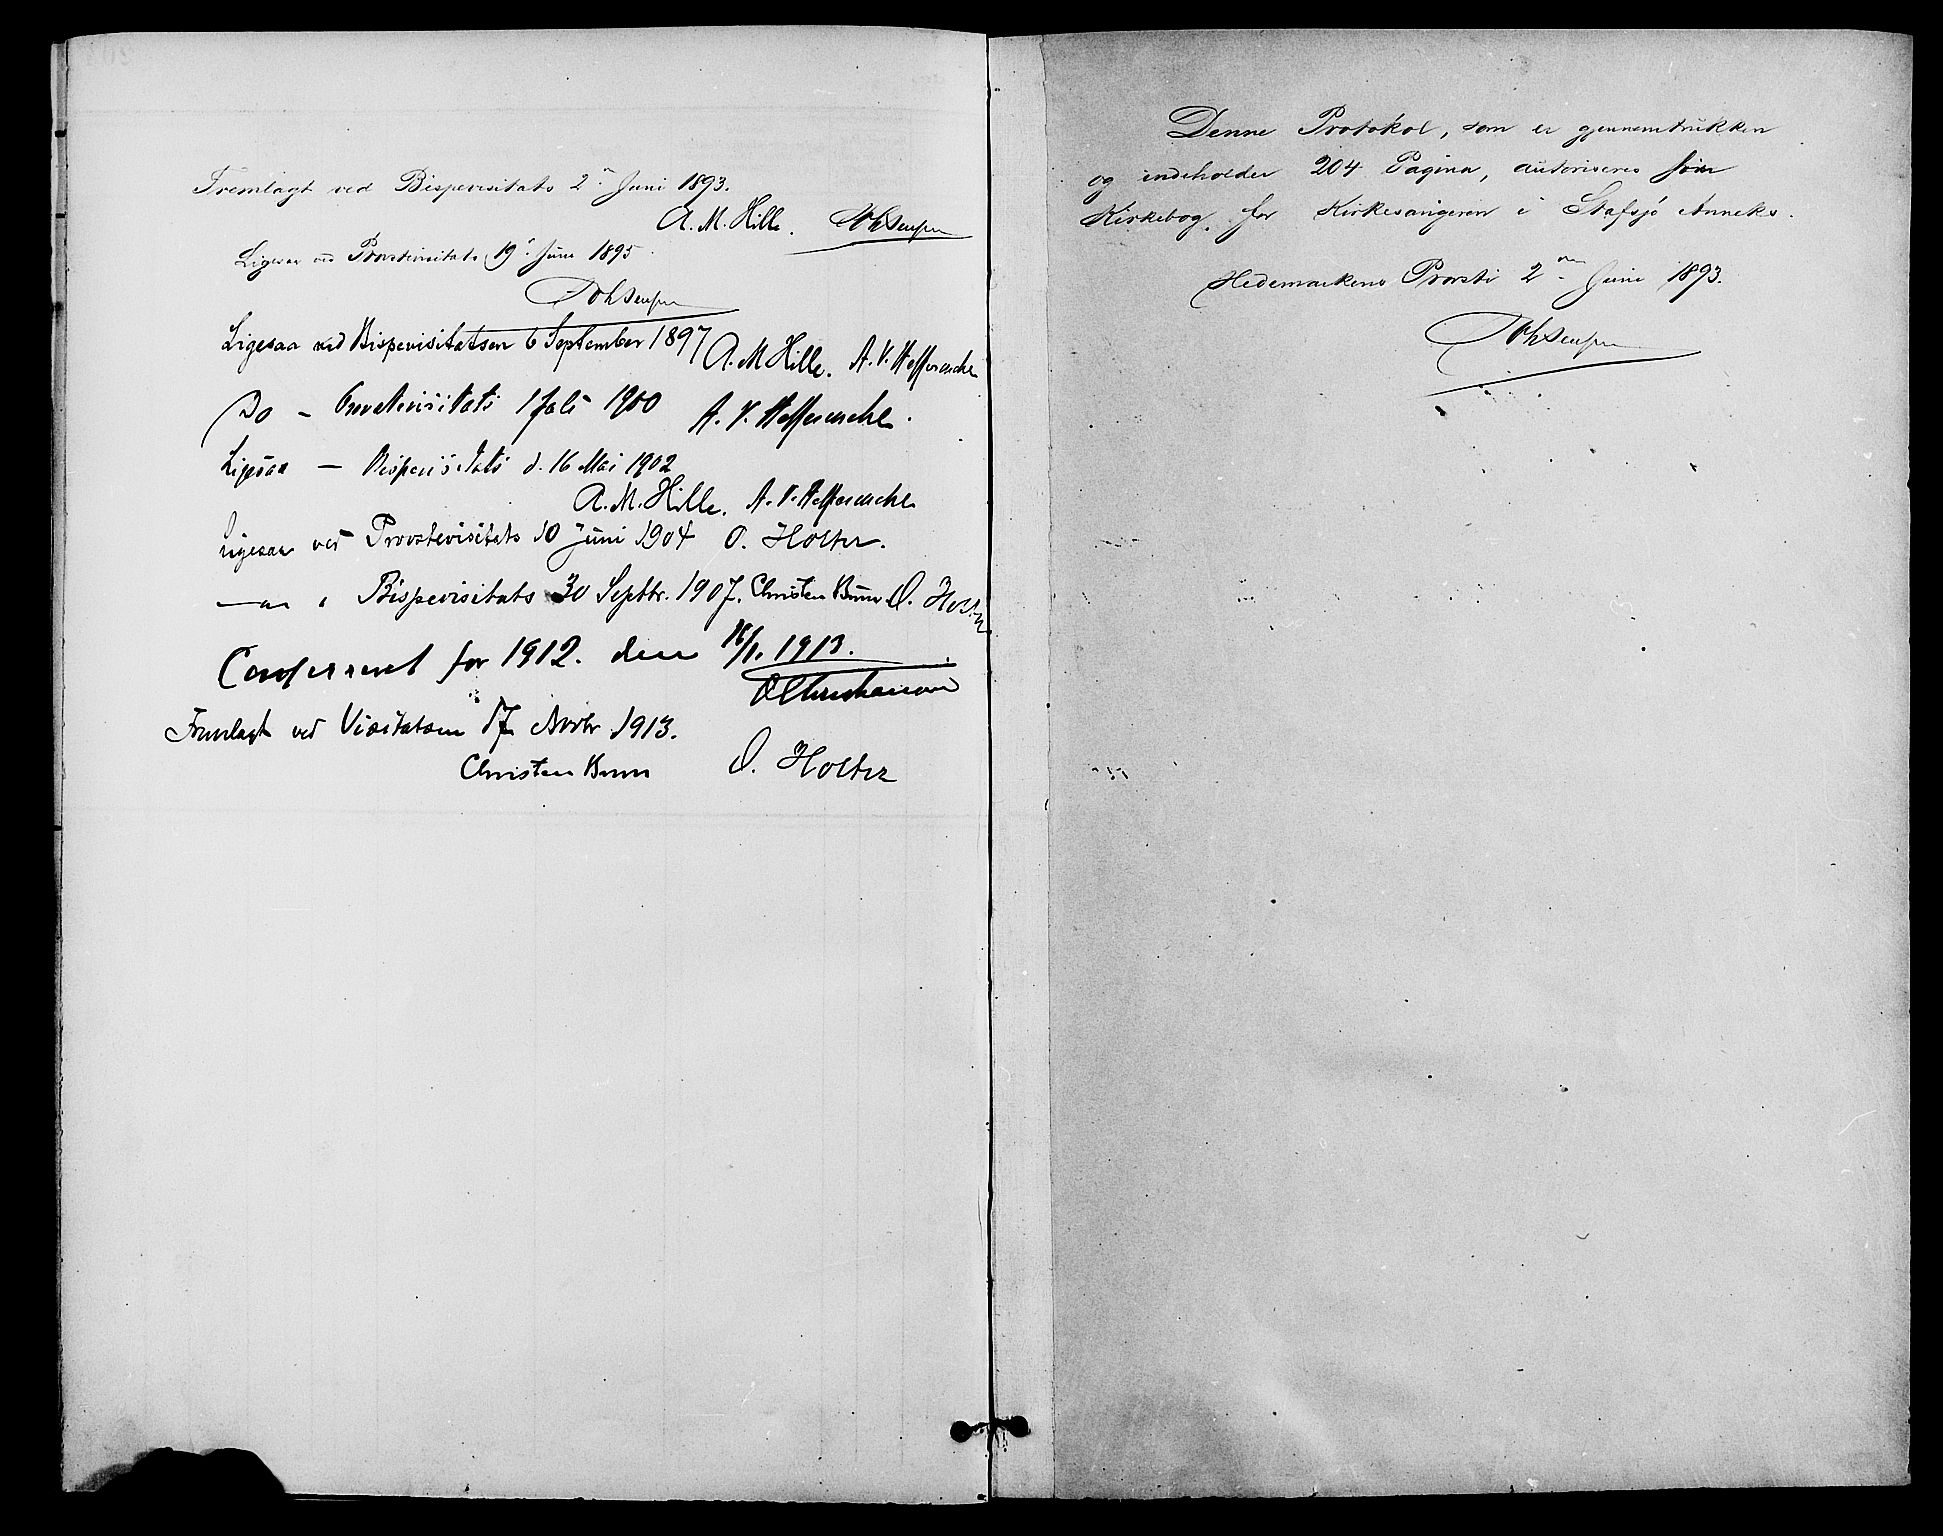 Fremlagt ved Bispevisitats 2n Juni 1893.
A. M. Hille.
Ligesaa ved Provstevisitats 19' Juni 1895
Ligesaa ved Bispevisitatsen 6 September 1897 A. M Hille. A. V. Heffermehl
Do - Provstevisitats 1 Juli 1900 A. V. Heffermehl.
Ligesaa - Bispevisitats d. 16 Mai 1902
A. M. Hille. A. V. Heffermehl
Ligesaa ved Provstevisitats 10 Juni 1904 O. Holter.
Bispevisitats 30 Septbr. 1907. Christen Brun O. Holter
Confereret for 1912. den 16/1. 1913.
O Christiansen
Fremlagt ved Visitatsen 17 Novbr 1913.
Christen Brun O. Holter
Denne Protokol, som er gjennemtrukken
og indeholder 204 Pagina, autoriseres som
Kirkebog for Kirkesangeren i Stafsjø Anneks.
Hedemarkens Provsti 2den Juni 1893.